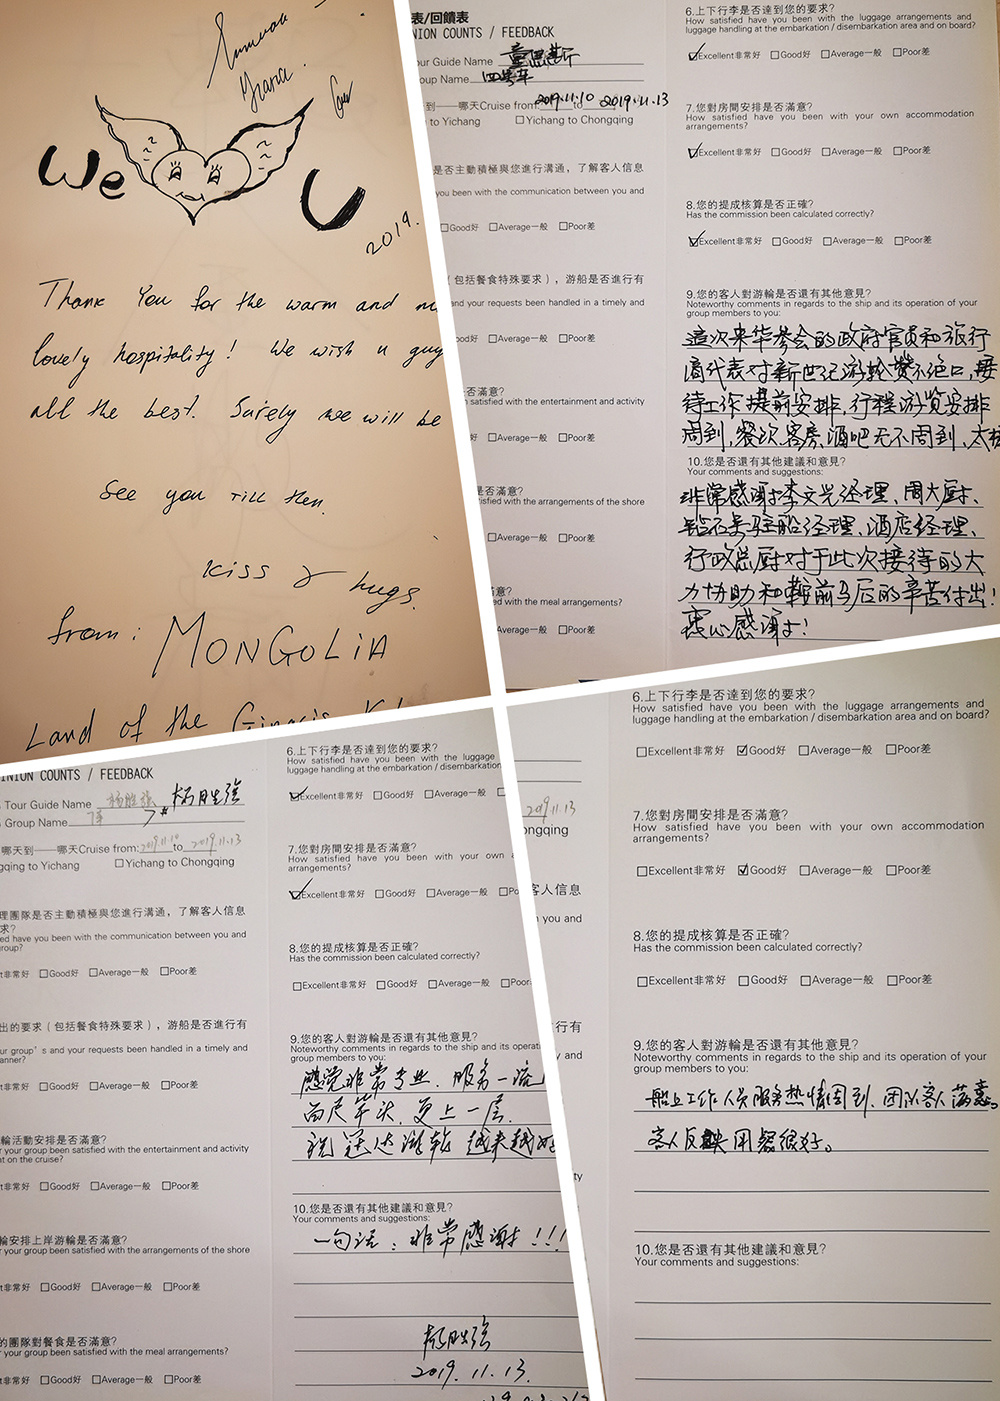 We U
2019.
Thank You for the warm and
lovely hospitality! We wish u guy
all the best. Surely we will be
See you till then.
Kiss & hugs.
from: MONGOLIA
Land of the
表/回饋表
NION COUNTS / FEEDBACK
our Guide Name
oup Name 四号车
到——哪天Cruise from: 2019.11.10 to 2019.11.13
to Yichang □Yichang to Chongqing
是否主動積極與您進行溝通，了解客人信息
you been with the communication between you and
□Good好 □Average一般 □Poor差
（包括餐食特殊要求），游船是否進行有
and your requests been handled in a timely and
ood好 □Average一般 □Poor差
否滿意?
satisfied with the entertainment and activity
od好 □Average一般 □Poor差
是否滿意?
tisfied with the arrangements of the shore
□Average一般 □Poor差
意?
ed with the meal arrangements?
□Average一般 □Poor差
6.上下行李是否達到您的要求?
How satisfied have you been with the luggage arrangements and
luggage handling at the embarkation / disembarkation area and on board?
☑Excellent非常好 □Good好 □Average一般 □Poor差
7.您對房間安排是否滿意?
How satisfied have you been with your own accommodation
arrangements?
☑Excellent非常好 □Good好 □Average一般 □Poor差
8.您的提成核算是否正確?
Has the commission been calculated correctly?
☑Excellent非常好 □Good好 □Average一般 □Poor差
9.您的客人對游輪是否還有其他意見?
Noteworthy comments in regards to the ship and its operation of your
group members to you:
這次来华参会的政府官员和旅行
商代表对新世纪游轮赞不绝口,接
待工作提前安排,行程游览安排
周到,餐饮、客房、酒吧无不周到、太
10.您是否還有其他建議和意見?
Your comments and suggestions:
非常感谢李文兴经理、周大厨、
驻船经理、酒店经理、
行政总厨对于此次接待的大
力协助和鞍前马后的辛苦付出!
衷心感谢!
NION COUNTS / FEEDBACK
Tour Guide Name 杨胜强 杨胜强
Group Name 7车 7#
哪天到——哪天Cruise from: 2019.11.10 to 2019.11.13
gqing to Yichang □Yichang to Chongqing
理團隊是否主動積極與您進行溝通，了解客人信息
求?
ed have you been with the communication between you and
group?
t非常好 □Good好 □Average一般 □Poor差
出的要求（包括餐食特殊要求），游船是否進行有
ur group's and your requests been handled in a timely and
anner?
t非常好 □Good好 □Average一般 □Poor差
輪活動安排是否滿意?
r your group been satisfied with the entertainment and activity
t on the cruise?
t非常好 □Good好 □Average一般 □Poor差
輪安排上岸游輪是否滿意?
r your group been satisfied with the arrangements of the shore
t非常好 □Good好 □Average一般 □Poor差
的團隊對餐食是否滿意?
r your group been satisfied with the meal arrangements?
t非常好 □Good好 □Average一般 □Poor差
6.上下行李是否達到您的要求?
How satisfied have you been with the luggage
luggage handling at the embarkation / disembarkation
☑Excellent非常好 □Good好 □Average一般
7.您對房間安排是否滿意?
How satisfied have you been with your own a
arrangements?
☑Excellent非常好 □Good好 □Average一般 □Po
8.您的提成核算是否正確?
Has the commission been calculated correctly?
□Excellent非常好 □Good好 □Average一般 □Poor
9.您的客人對游輪是否還有其他意見?
Noteworthy comments in regards to the ship and its operat
group members to you:
感觉非常专业、服务一流
百尺竿头,更上一层.
祝冠达游轮越来越好
10.您是否還有其他建議和意見?
Your comments and suggestions:
一句话:非常感谢!!!
杨胜强
2019.11.13.
2019.11.13
ongqing
客人信息
you and
行有
y and
ty
6.上下行李是否達到您的要求?
How satisfied have you been with the luggage arrangements and
luggage handling at the embarkation / disembarkation area and on board?
□Excellent非常好 ☑Good好 □Average一般 □Poor差
7.您對房間安排是否滿意?
How satisfied have you been with your own accommodation
arrangements?
□Excellent非常好 ☑Good好 □Average一般 □Poor差
8.您的提成核算是否正確?
Has the commission been calculated correctly?
□Excellent非常好 □Good好 □Average一般 □Poor差
9.您的客人對游輪是否還有其他意見?
Noteworthy comments in regards to the ship and its operation of your
group members to you:
船上工作人员服务热情周到、团队客人满意。
客人反映用餐很好。
10.您是否還有其他建議和意見?
Your comments and suggestions: